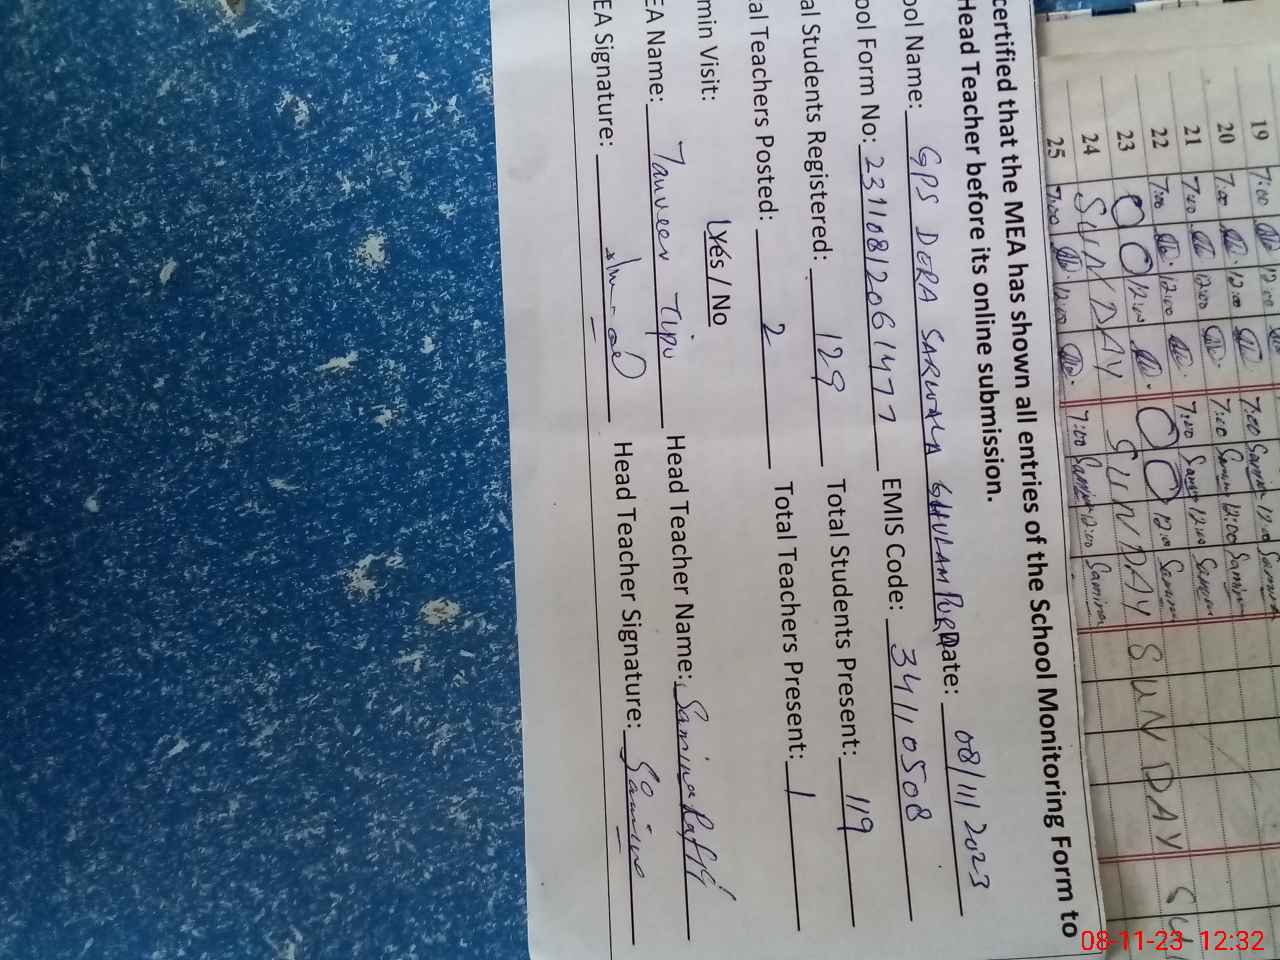 certified that the MEA has shown all entries of the School Monitoring Form to
Head Teacher before its online submission.
ool Name: GPS DERA SARWALA GHULAM PUR Date: 08/11/2023
ool Form No: 23110812061477 EMIS Code: 34110508
al Students Registered: 129 Total Students Present: 119
al Teachers Posted: 2 Total Teachers Present: 1
min Visit: Yes / No
EA Name: Tanveer Tipu Head Teacher Name: Samina Rafiq
EA Signature: Head Teacher Signature: Samina
19 7:00 12:00 7:00 Samina 12:00 Samina
20 7:00 12:00 7:00 Samina 12:00 Samina
21 7:40 12:00 7:00 Samina 12:00 Samina
22 7:00 12:00 12:00 Samina
23 12:00 SUNDAY SUNDAY SU
24 SUNDAY
25 7:00 12:00 7:00 Samina 12:00 Samina
08-11-23 12:32